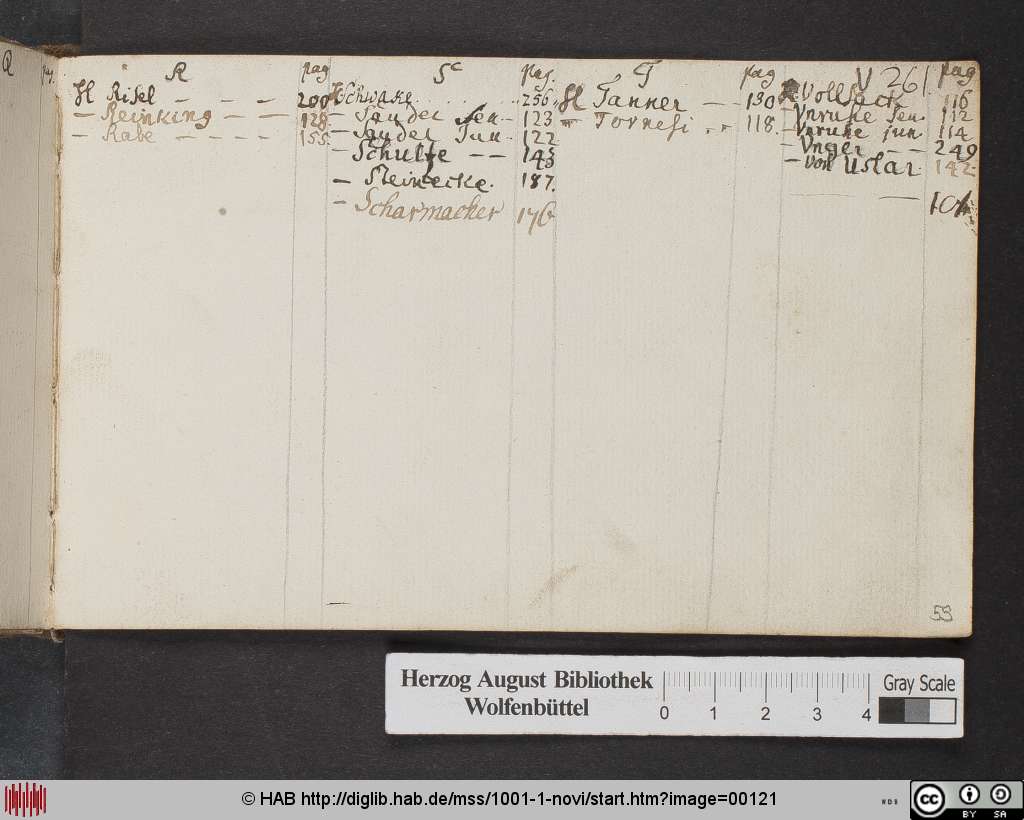 Q
R pag
Hl Risel - - - 200
- Reinking - - 128
- Rabe - - - - 155.
S pag.
Schwake 256
- Sander Sen - 123
- Sander Jun - 122
- Schultze - - 143
- Steinecke. 187.
- Scharmacker 176
T pag
Hl Tanner - - 130
- Tornesi . . 118.
V 261. pag
Vollsack 116
- Vnruhe Sen. 112
- Vnruhe jun. 114
- Vnger - - 249
- von Uslar 142
53
Herzog August Bibliothek
Wolfenbüttel
0 1 2 3 4
Gray Scale
© HAB http://diglib.hab.de/mss/1001-1-novi/start.htm?image=00121
WDB
cc BY SA